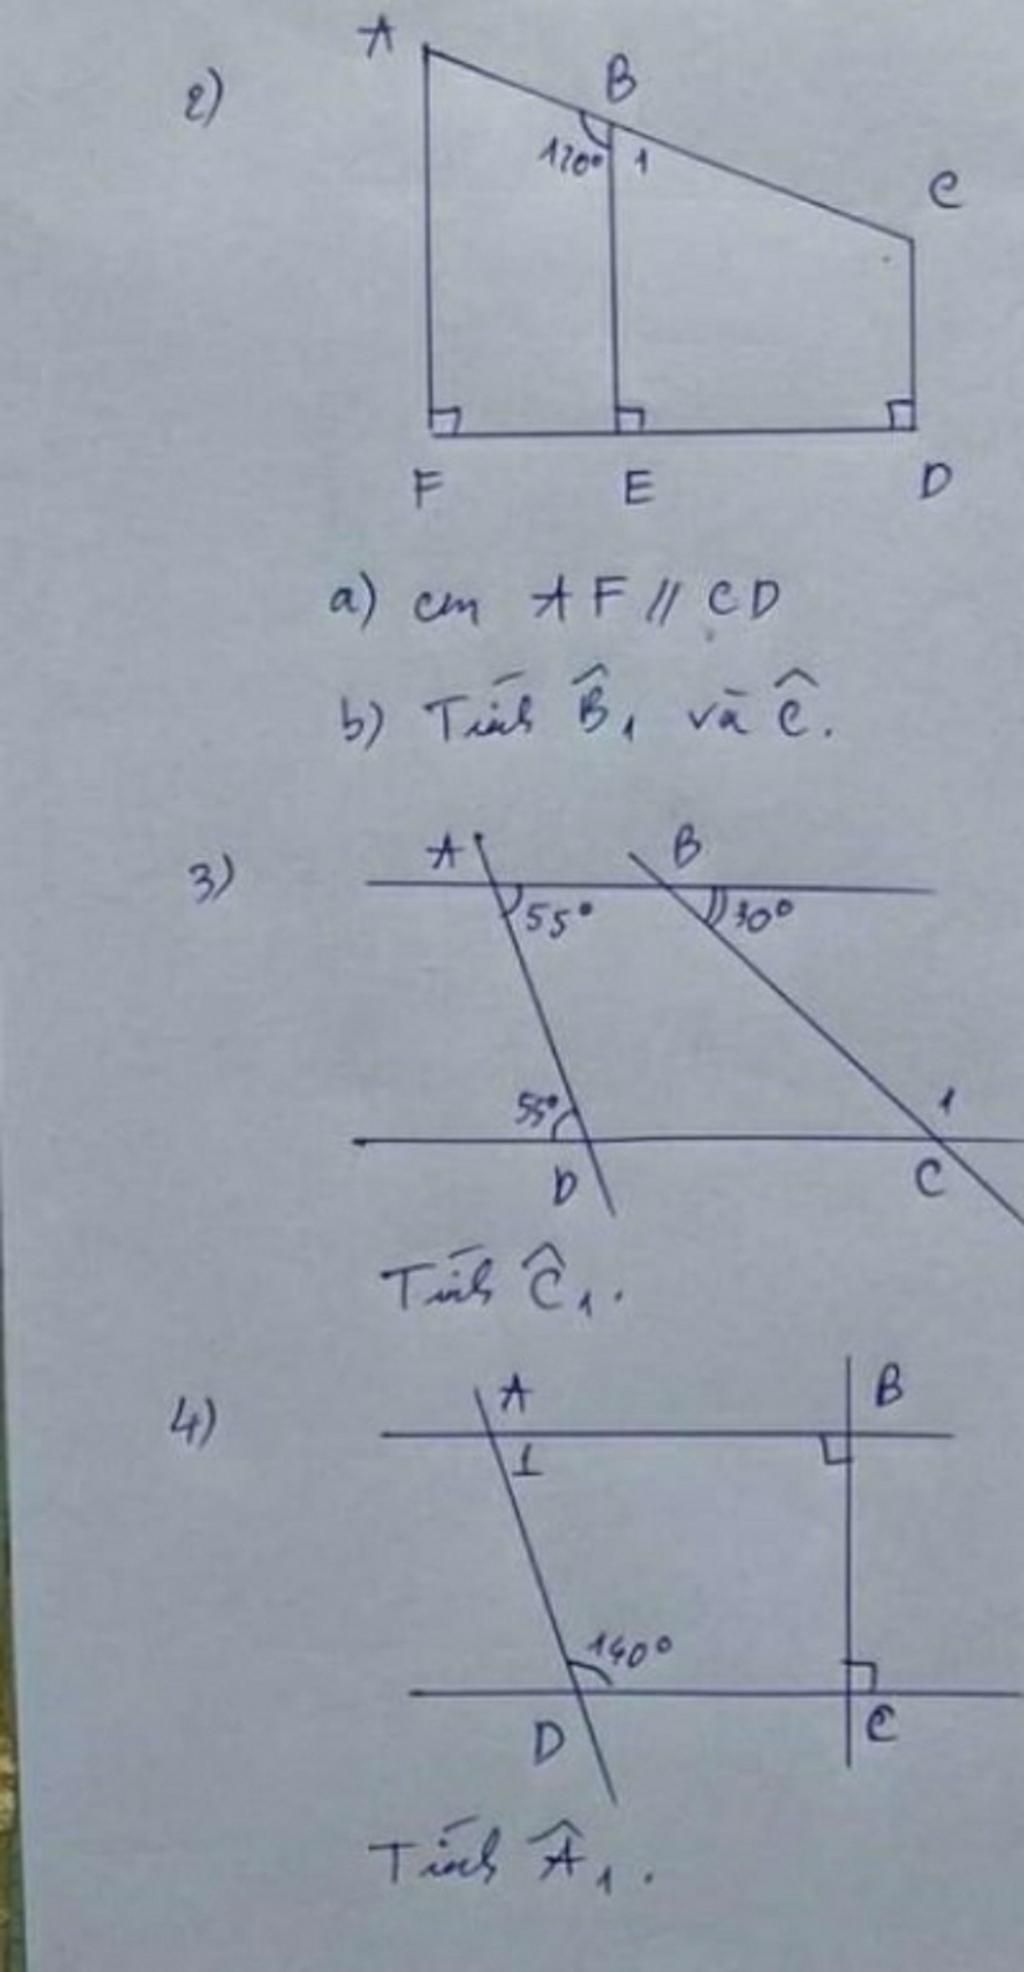 2)
A
B
120° 1
C
F E D
a) cm AF // CD
b) Tính B̂₁ và Ĉ.
3)
A B
55° 30°
55° 1
D C
Tính Ĉ₁.
4)
A B
1
140°
D C
Tính Â₁.